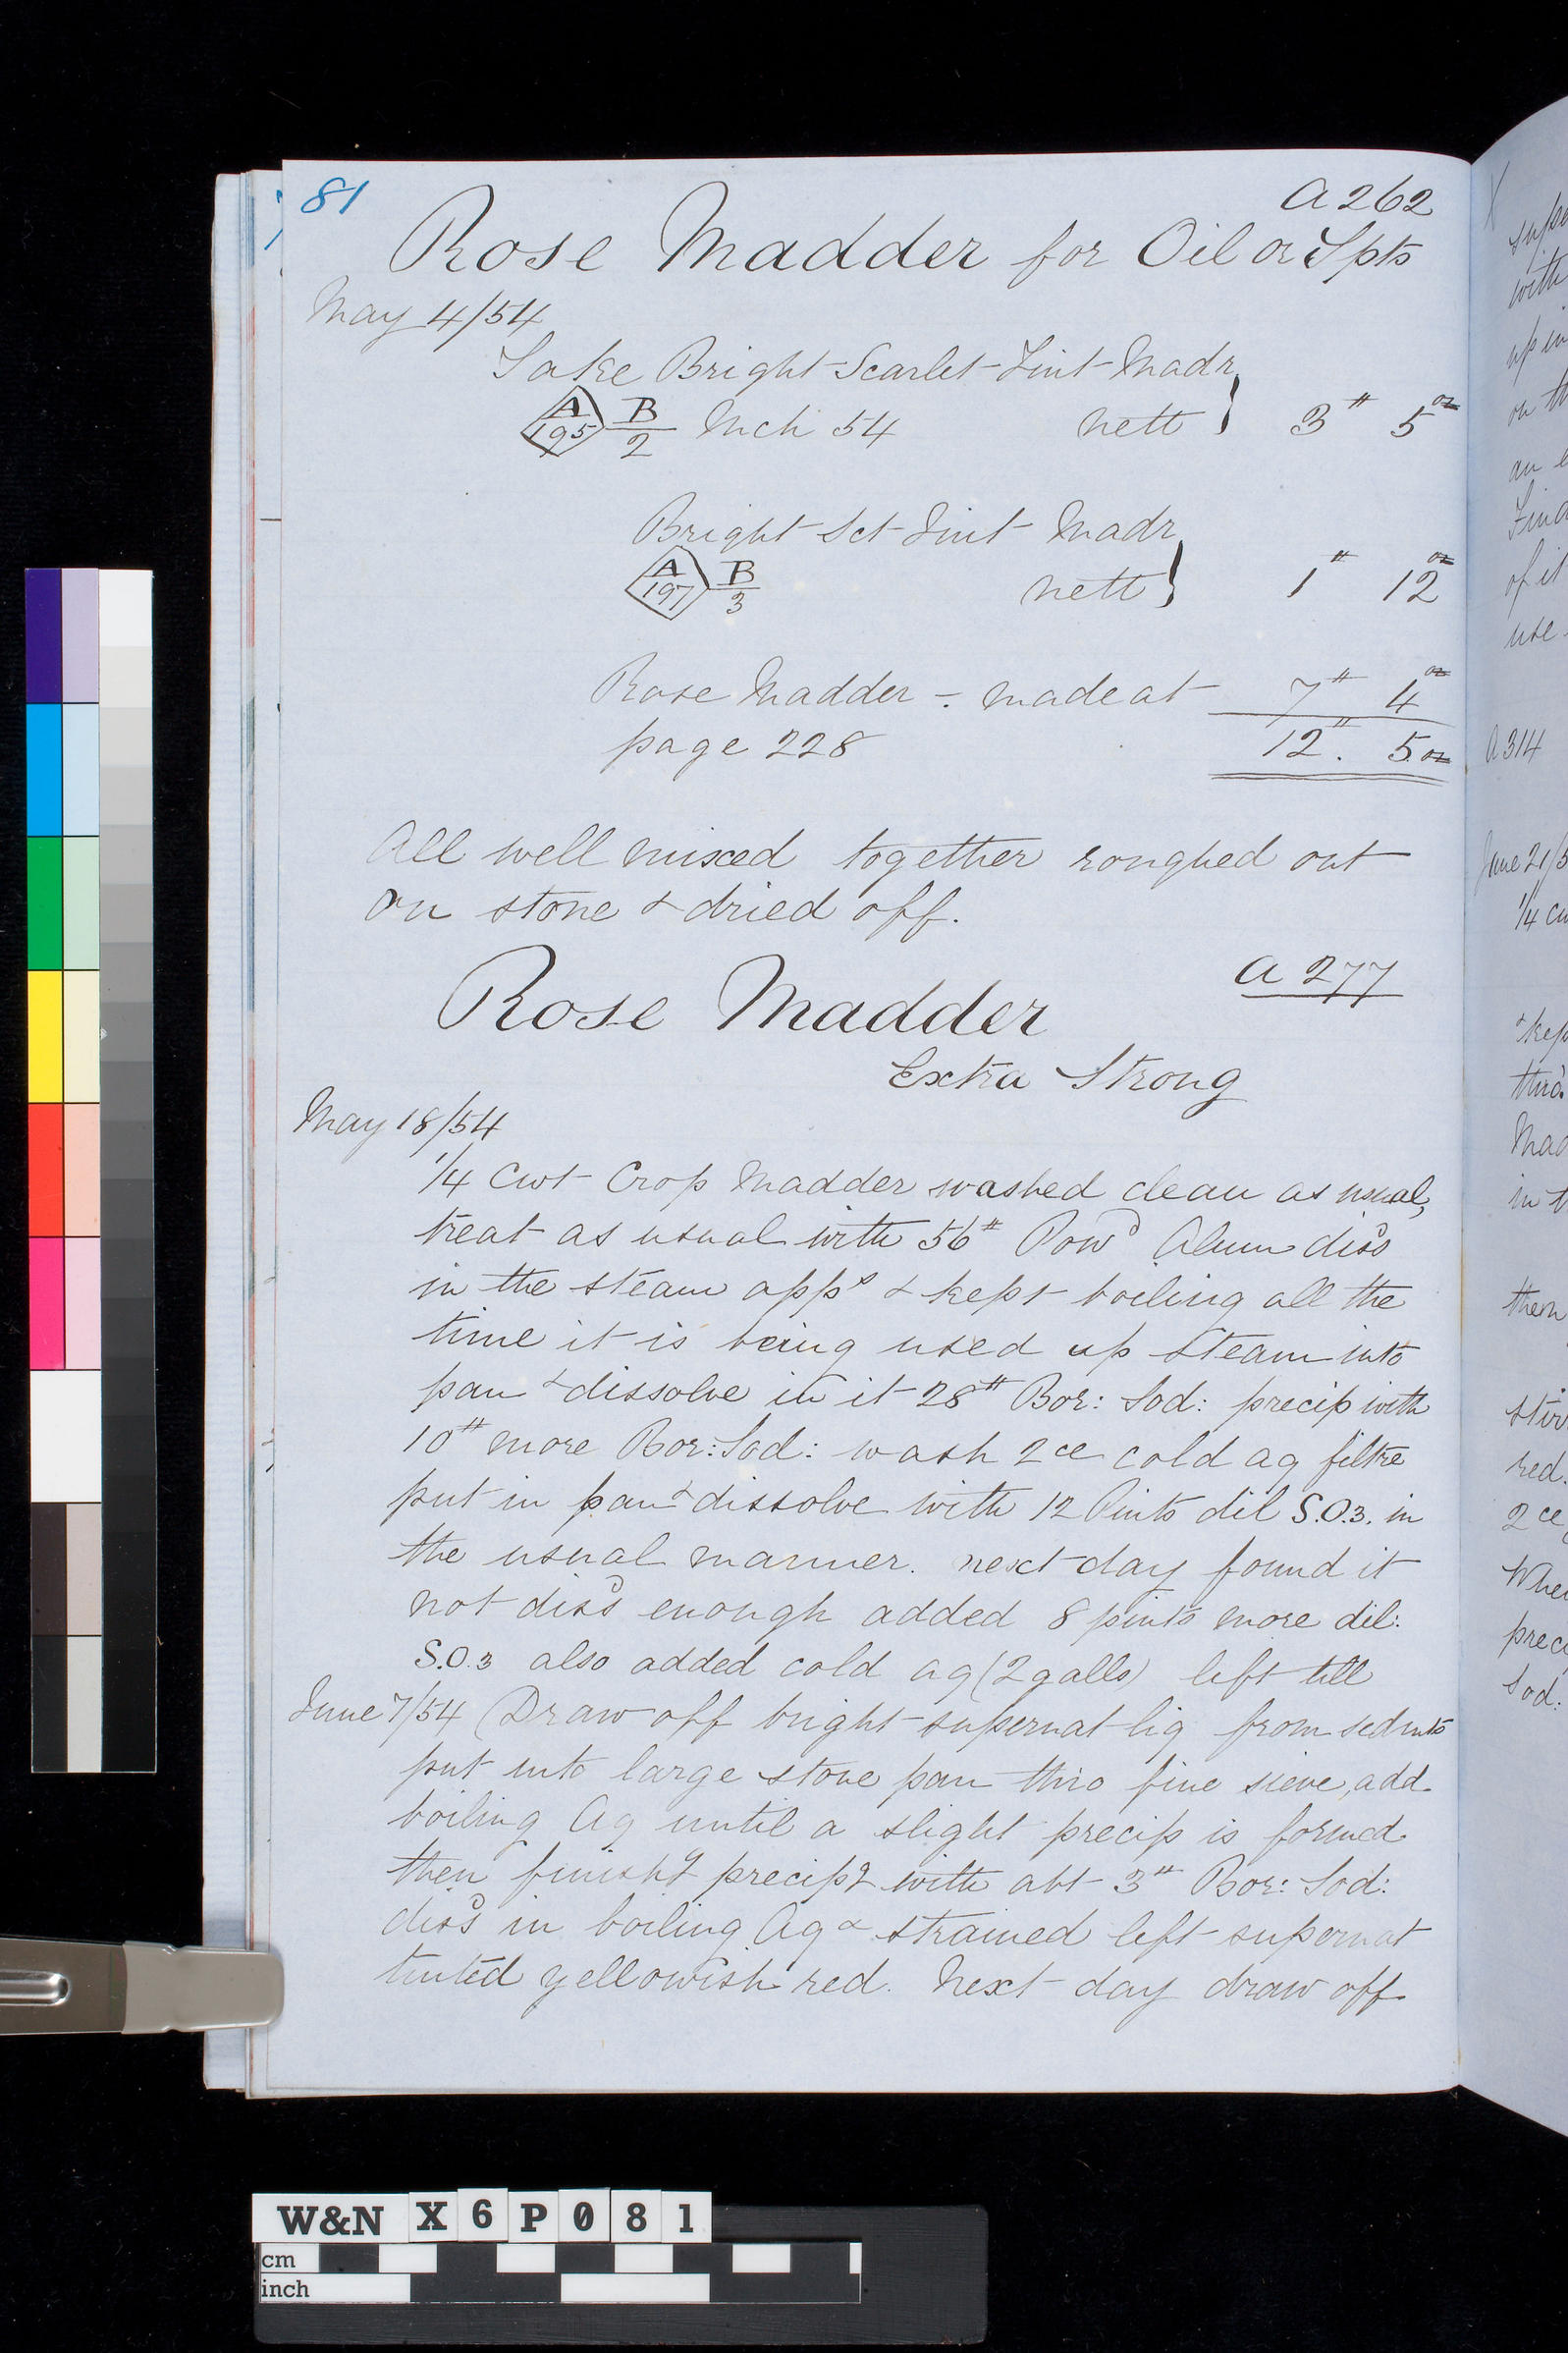 81
A 262
Rose Madder for Oil or Spts
May 4/54
Take Bright Scarlet Tint Madr
A 195 B/2 Mch 54 nett } 3 # 5 oz
Bright Sct Tint Madr
A 197 B/3 nett } 1 # 12 oz
Rose Madder - made at 7 # 4 oz
page 228 12 #. 5 oz
All well mixed together roughed out
on stone & dried off.
A 277
Rose Madder
Extra Strong
May 18/54
1/4 Cwt Crop Madder washed clean as usual,
treat as usual with 56 # Powd Alum dissd
in the steam apps & kept boiling all the
time it is being used up steam into
pan & dissolve in it 28 # Bor: Sod: precip with
10 # more Bor: Sod: wash 2ce cold aq filtre
put in pan & dissolve with 12 Pints dil S.O.3. in
the usual manner. next day found it
not dissd enough added 8 pints more dil:
S.O.3 also added cold aq (2 galls) left till
June 7/54 (Draw off bright supernat liq from sedmts
put into large stone pan thro fine sieve, add
boiling Aq until a slight precip is formed
then finishg precipg with abt 3 # Bor: Sod:
dissd in boiling Aq & strained left supernat
tinted yellowish red. Next day draw off
A 314
June 21/5
1/4 Cw
with
use
them
red.
2ce
prec
Sod:
W&N X 6 P 0 8 1
cm
inch